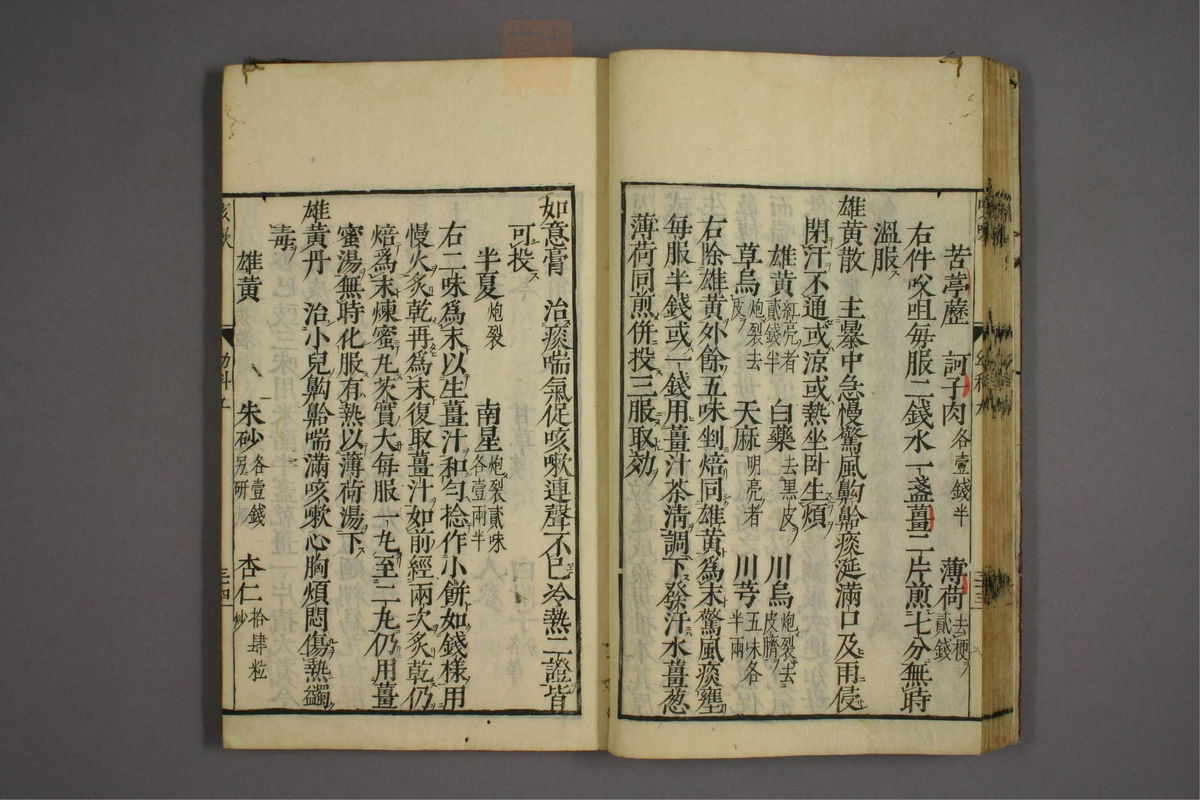 苦葶藶 訶子肉各壹錢半 薄荷去梗貳錢
右件㕮咀每服二錢水一盞薑二片煎七分無時
溫服
雄黃散 主暴中急慢驚風齁䶎痰涎滿口及雨侵
閉汗不通或涼或熱坐卧生煩
雄黃紅亮者貳錢半 白藥去黑皮 川烏炮裂去皮臍
草烏炮裂去皮 天麻明亮者 川芎五味各半兩
右除雄黃外餘五味剉焙同雄黃為末驚風痰壅
每服半錢或一錢用薑汁茶清調下發汗水薑葱
薄荷同煎併投三服取効
如意膏 治痰喘氣促咳嗽連聲不已冷熱二證皆
可投
半夏炮裂 南星炮裂貳味各壹兩半
右二味為末以生薑汁和勻捻作小餅如錢樣用
慢火炙乾再為末復取薑汁如前經兩次炙乾仍
焙為末煉蜜丸芡實大每服一丸至二丸仍用薑
蜜湯無時化服有熱以薄荷湯下
雄黃丹 治小兒齁䶎喘滿咳嗽心胸煩悶傷熱蠲
毒
雄黃 朱砂各壹錢另研 杏仁拾肆粒炒
幼科
三四